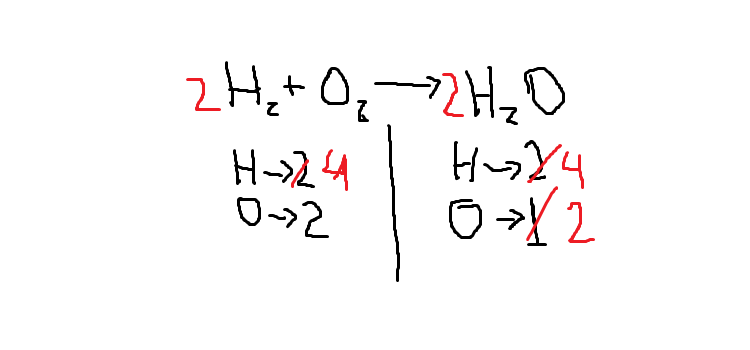 2H₂ + O₂ → 2H₂O
H → 2 4
O → 2
H → 2 4
O → 1 2